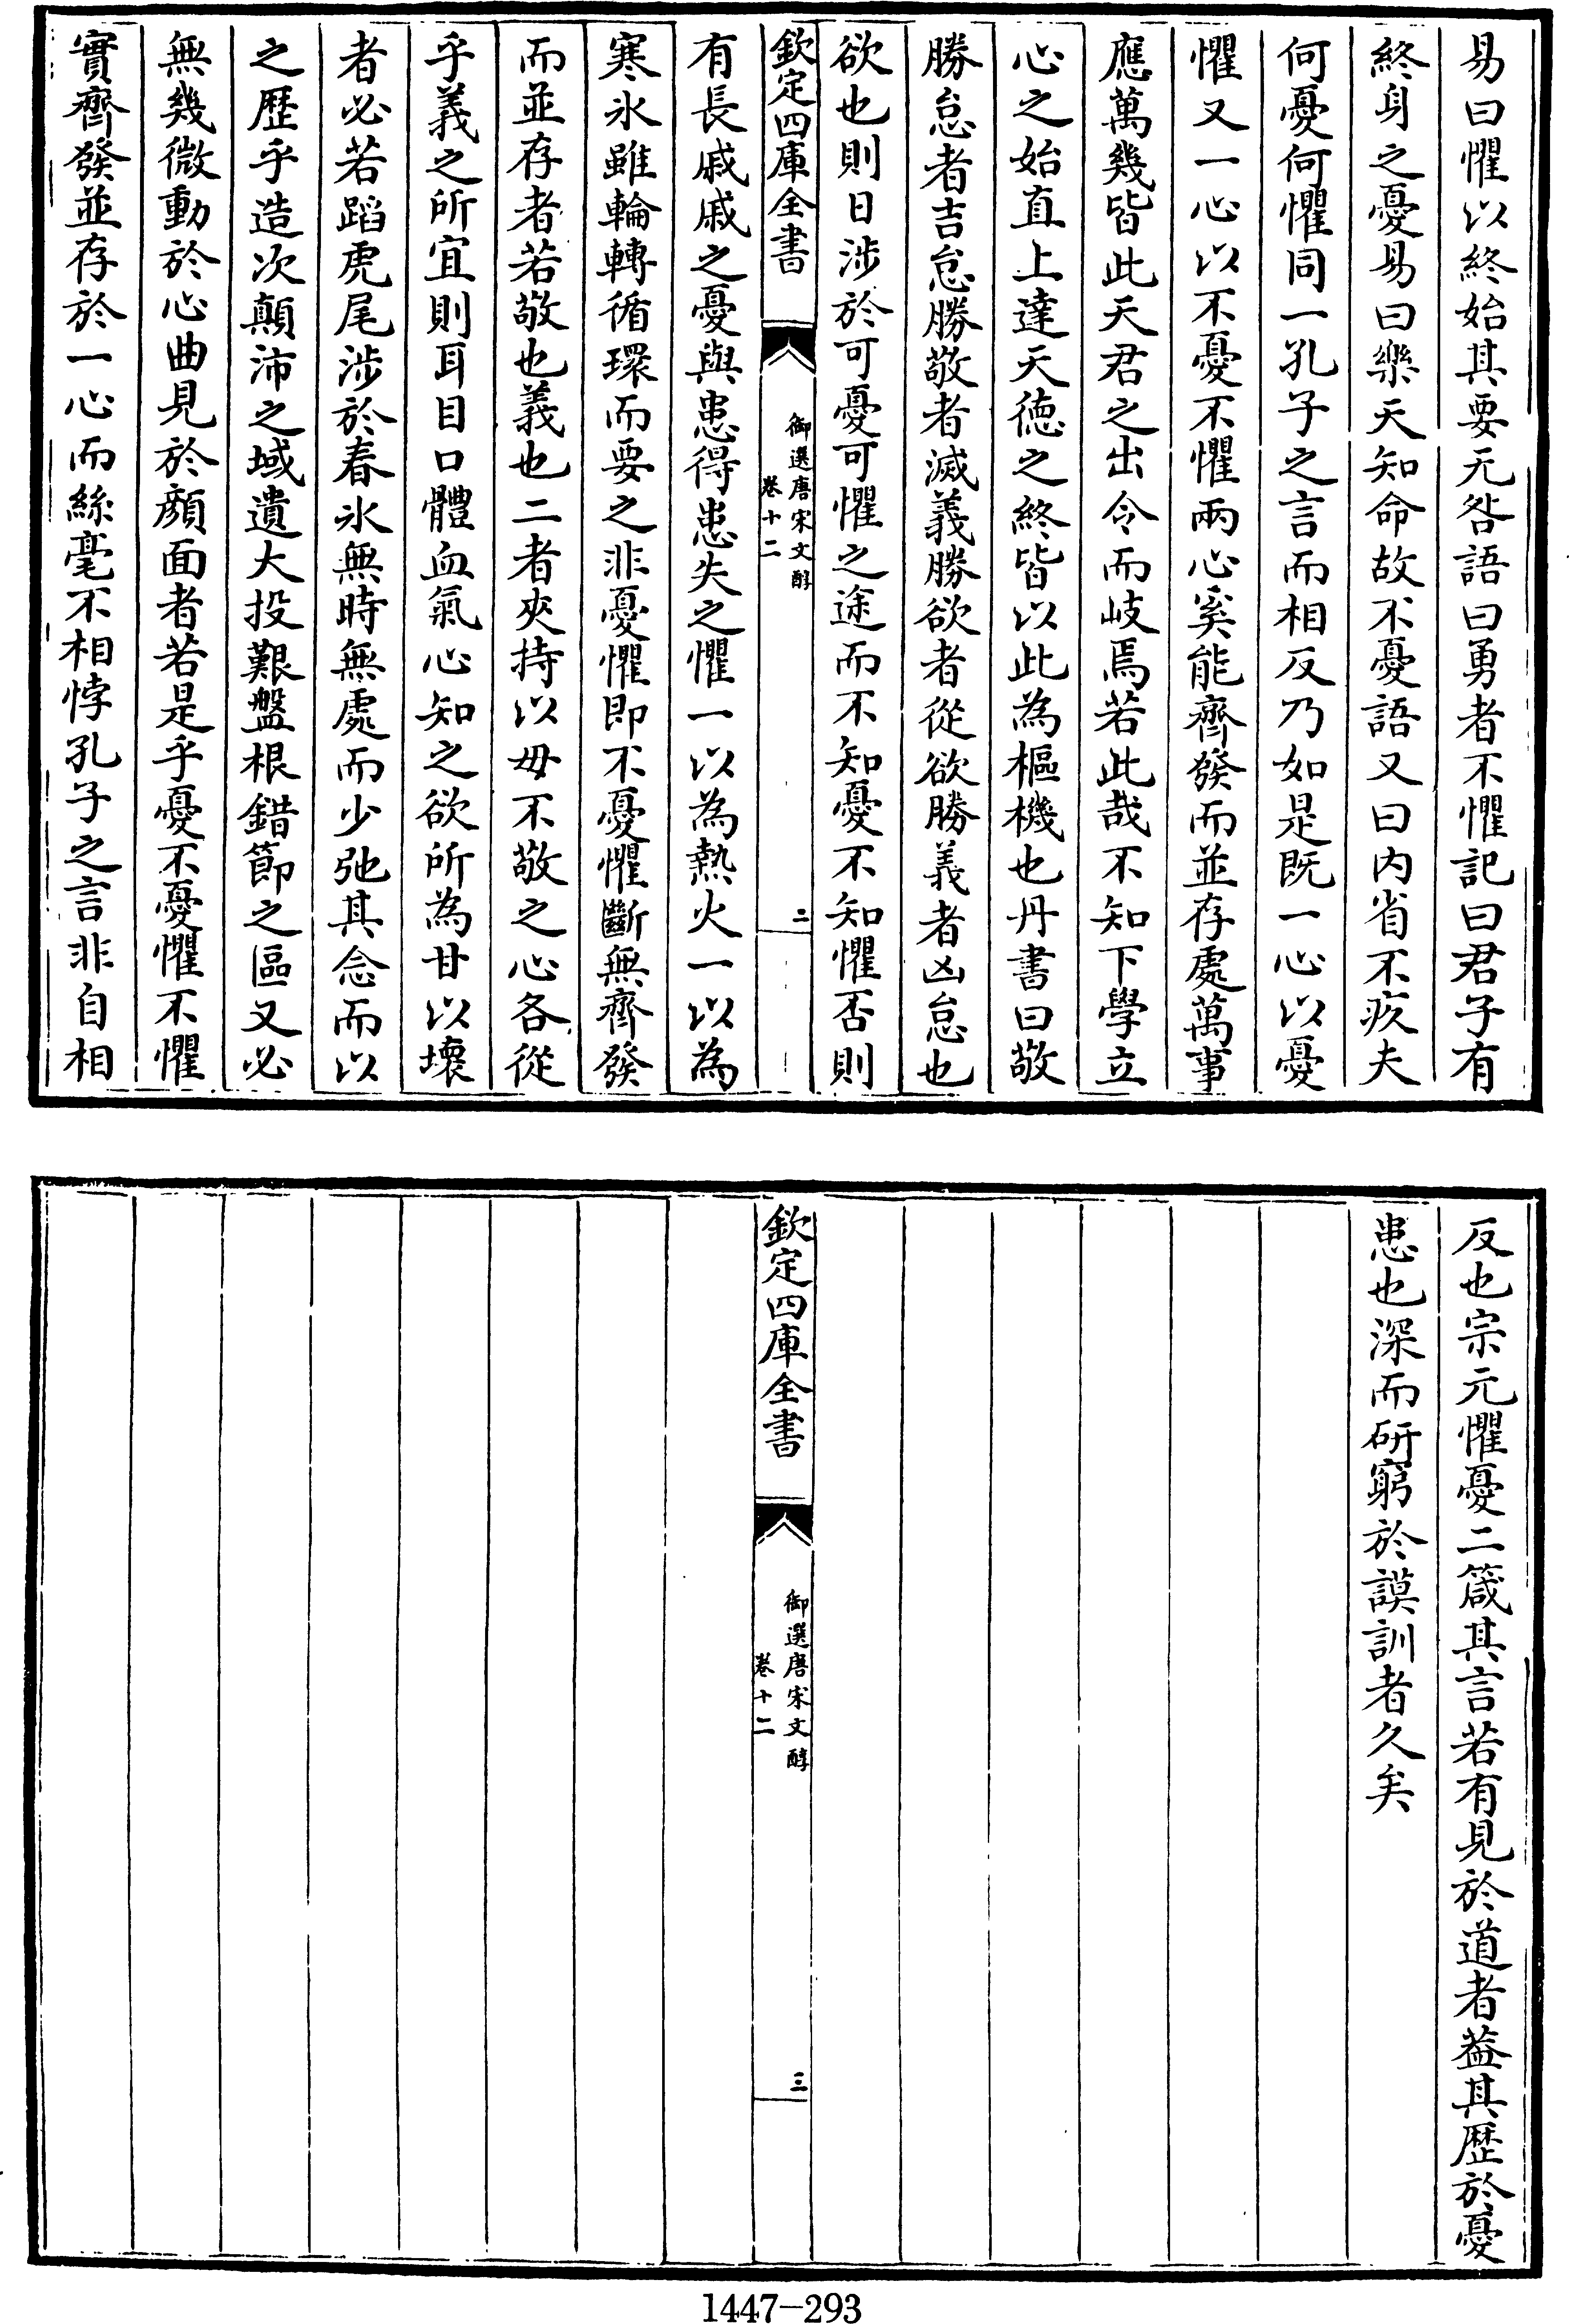 易曰懼以終始其要无咎語曰勇者不懼記曰君子有
終身之憂易曰樂天知命故不憂語又曰内省不疚夫
何憂何懼同一孔子之言而相反乃如是既一心以憂
懼又一心以不憂不懼兩心奚能齊發而並存處萬事
應萬幾皆此天君之出令而岐焉若此哉不知下學立
心之始直上達天德之終皆以此為樞機也丹書曰敬
勝怠者吉怠勝敬者滅義勝欲者從欲勝義者凶怠也
欲也則日涉於可憂可懼之途而不知憂不知懼否則
欽定四庫全書
御選唐宋文醇
卷十二
二
有長戚戚之憂與患得患失之懼一以為熱火一以為
寒氷雖輪轉循環而要之非憂懼即不憂懼斷無齊發
而並存者若敬也義也二者夾持以毋不敬之心各從
乎義之所宜則耳目口體血氣心知之欲所為甘以壞
者必若蹈虎尾涉於春氷無時無處而少弛其念而以
之歷乎造次顛沛之域遺大投艱盤根錯節之區又必
無幾微動於心曲見於顔面者若是乎憂不憂懼不懼
實齊發並存於一心而絲毫不相悖孔子之言非自相
反也宗元懼憂二箴其言若有見於道者葢其歷於憂
患也深而研窮於謨訓者久矣
欽定四庫全書
御選唐宋文醇
卷十二
三
1447-293